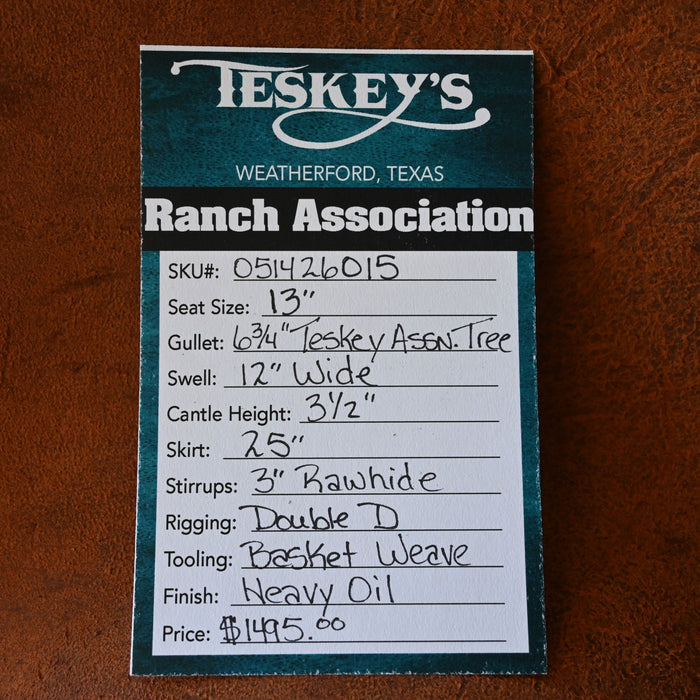 TESKEY'S
WEATHERFORD, TEXAS
Ranch Association
SKU#: 051426015
Seat Size: 13"
Gullet: 6 3/4" Teskey Assn. Tree
Swell: 12" Wide
Cantle Height: 3 1/2"
Skirt: 25"
Stirrups: 3" Rawhide
Rigging: Double D
Tooling: Basket Weave
Finish: Heavy Oil
Price: $1495.00